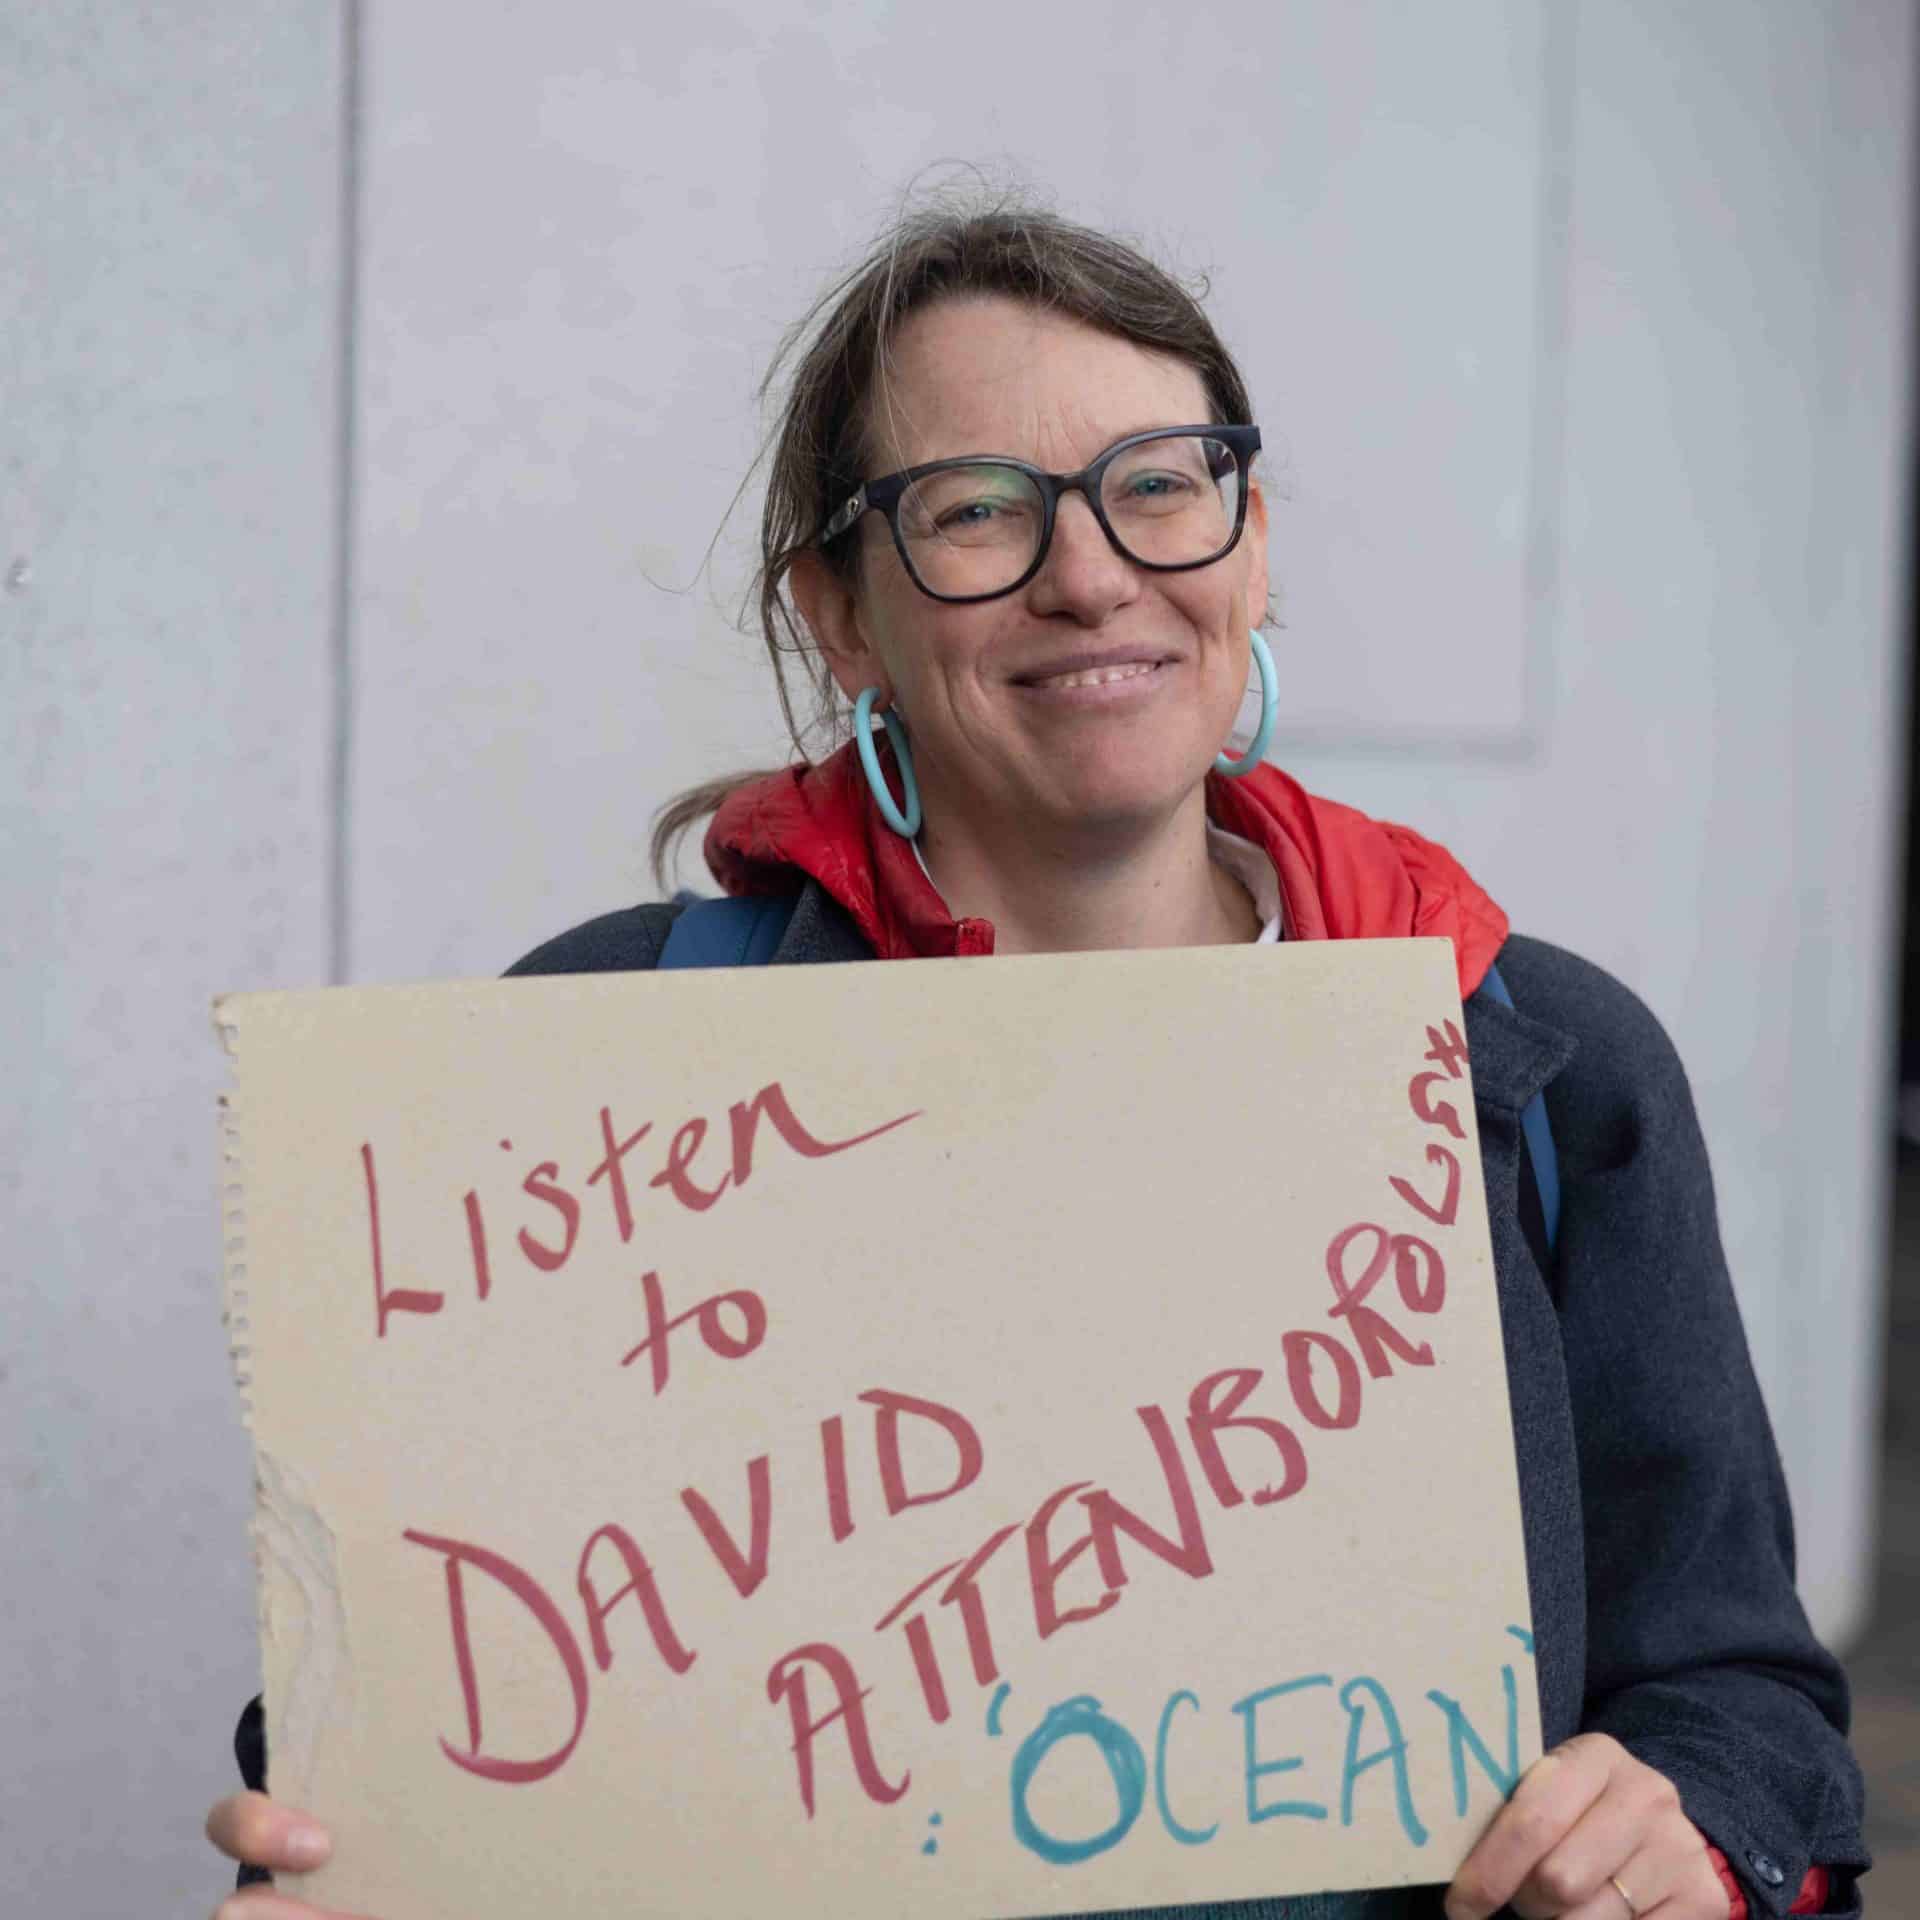 Listen
to
DAVID
ATTENBOROUGH
: 'OCEAN'